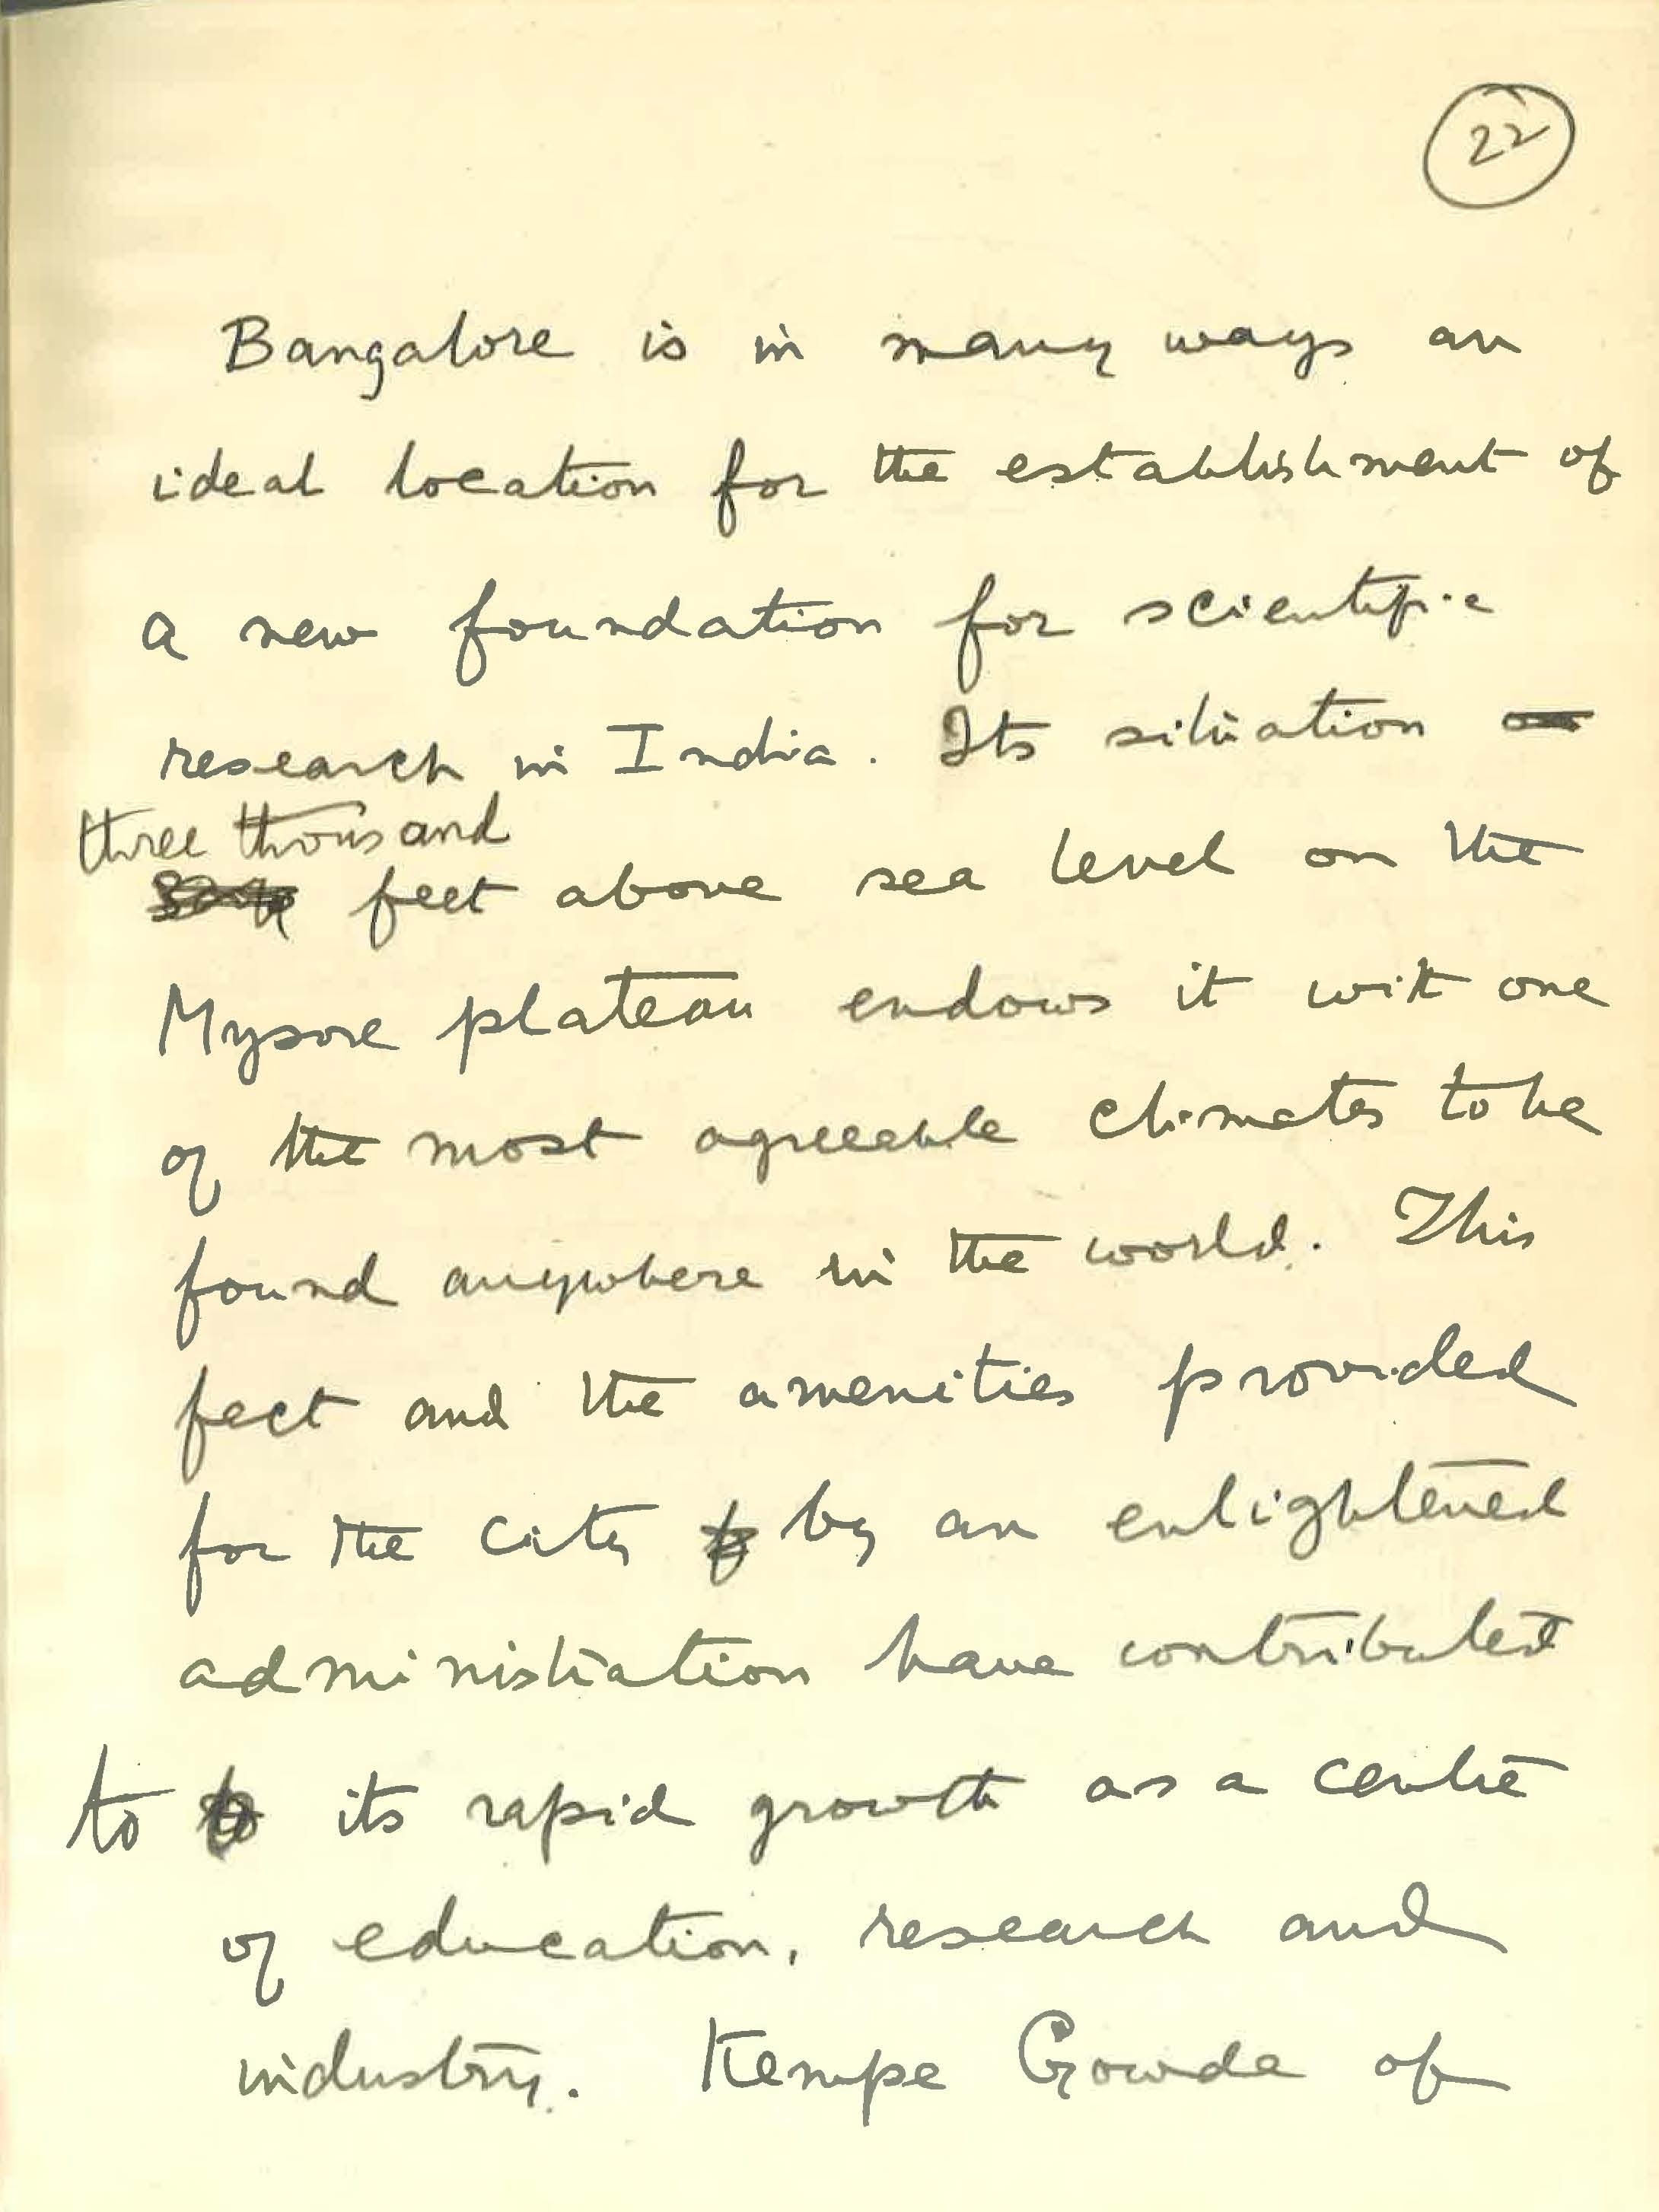 22
Bangalore is in many ways an
ideal location for the establishment of
a new foundation for scientific
research in India. Its situation
three thousand
feet above sea level on the
Mysore plateau endows it with one
of the most agreeable climates to be
found anywhere in the world. This
fact and the amenities provided
for the city by an enlightened
administration have contributed
to its rapid growth as a centre
of education, research and
industry. Kempe Gowda of